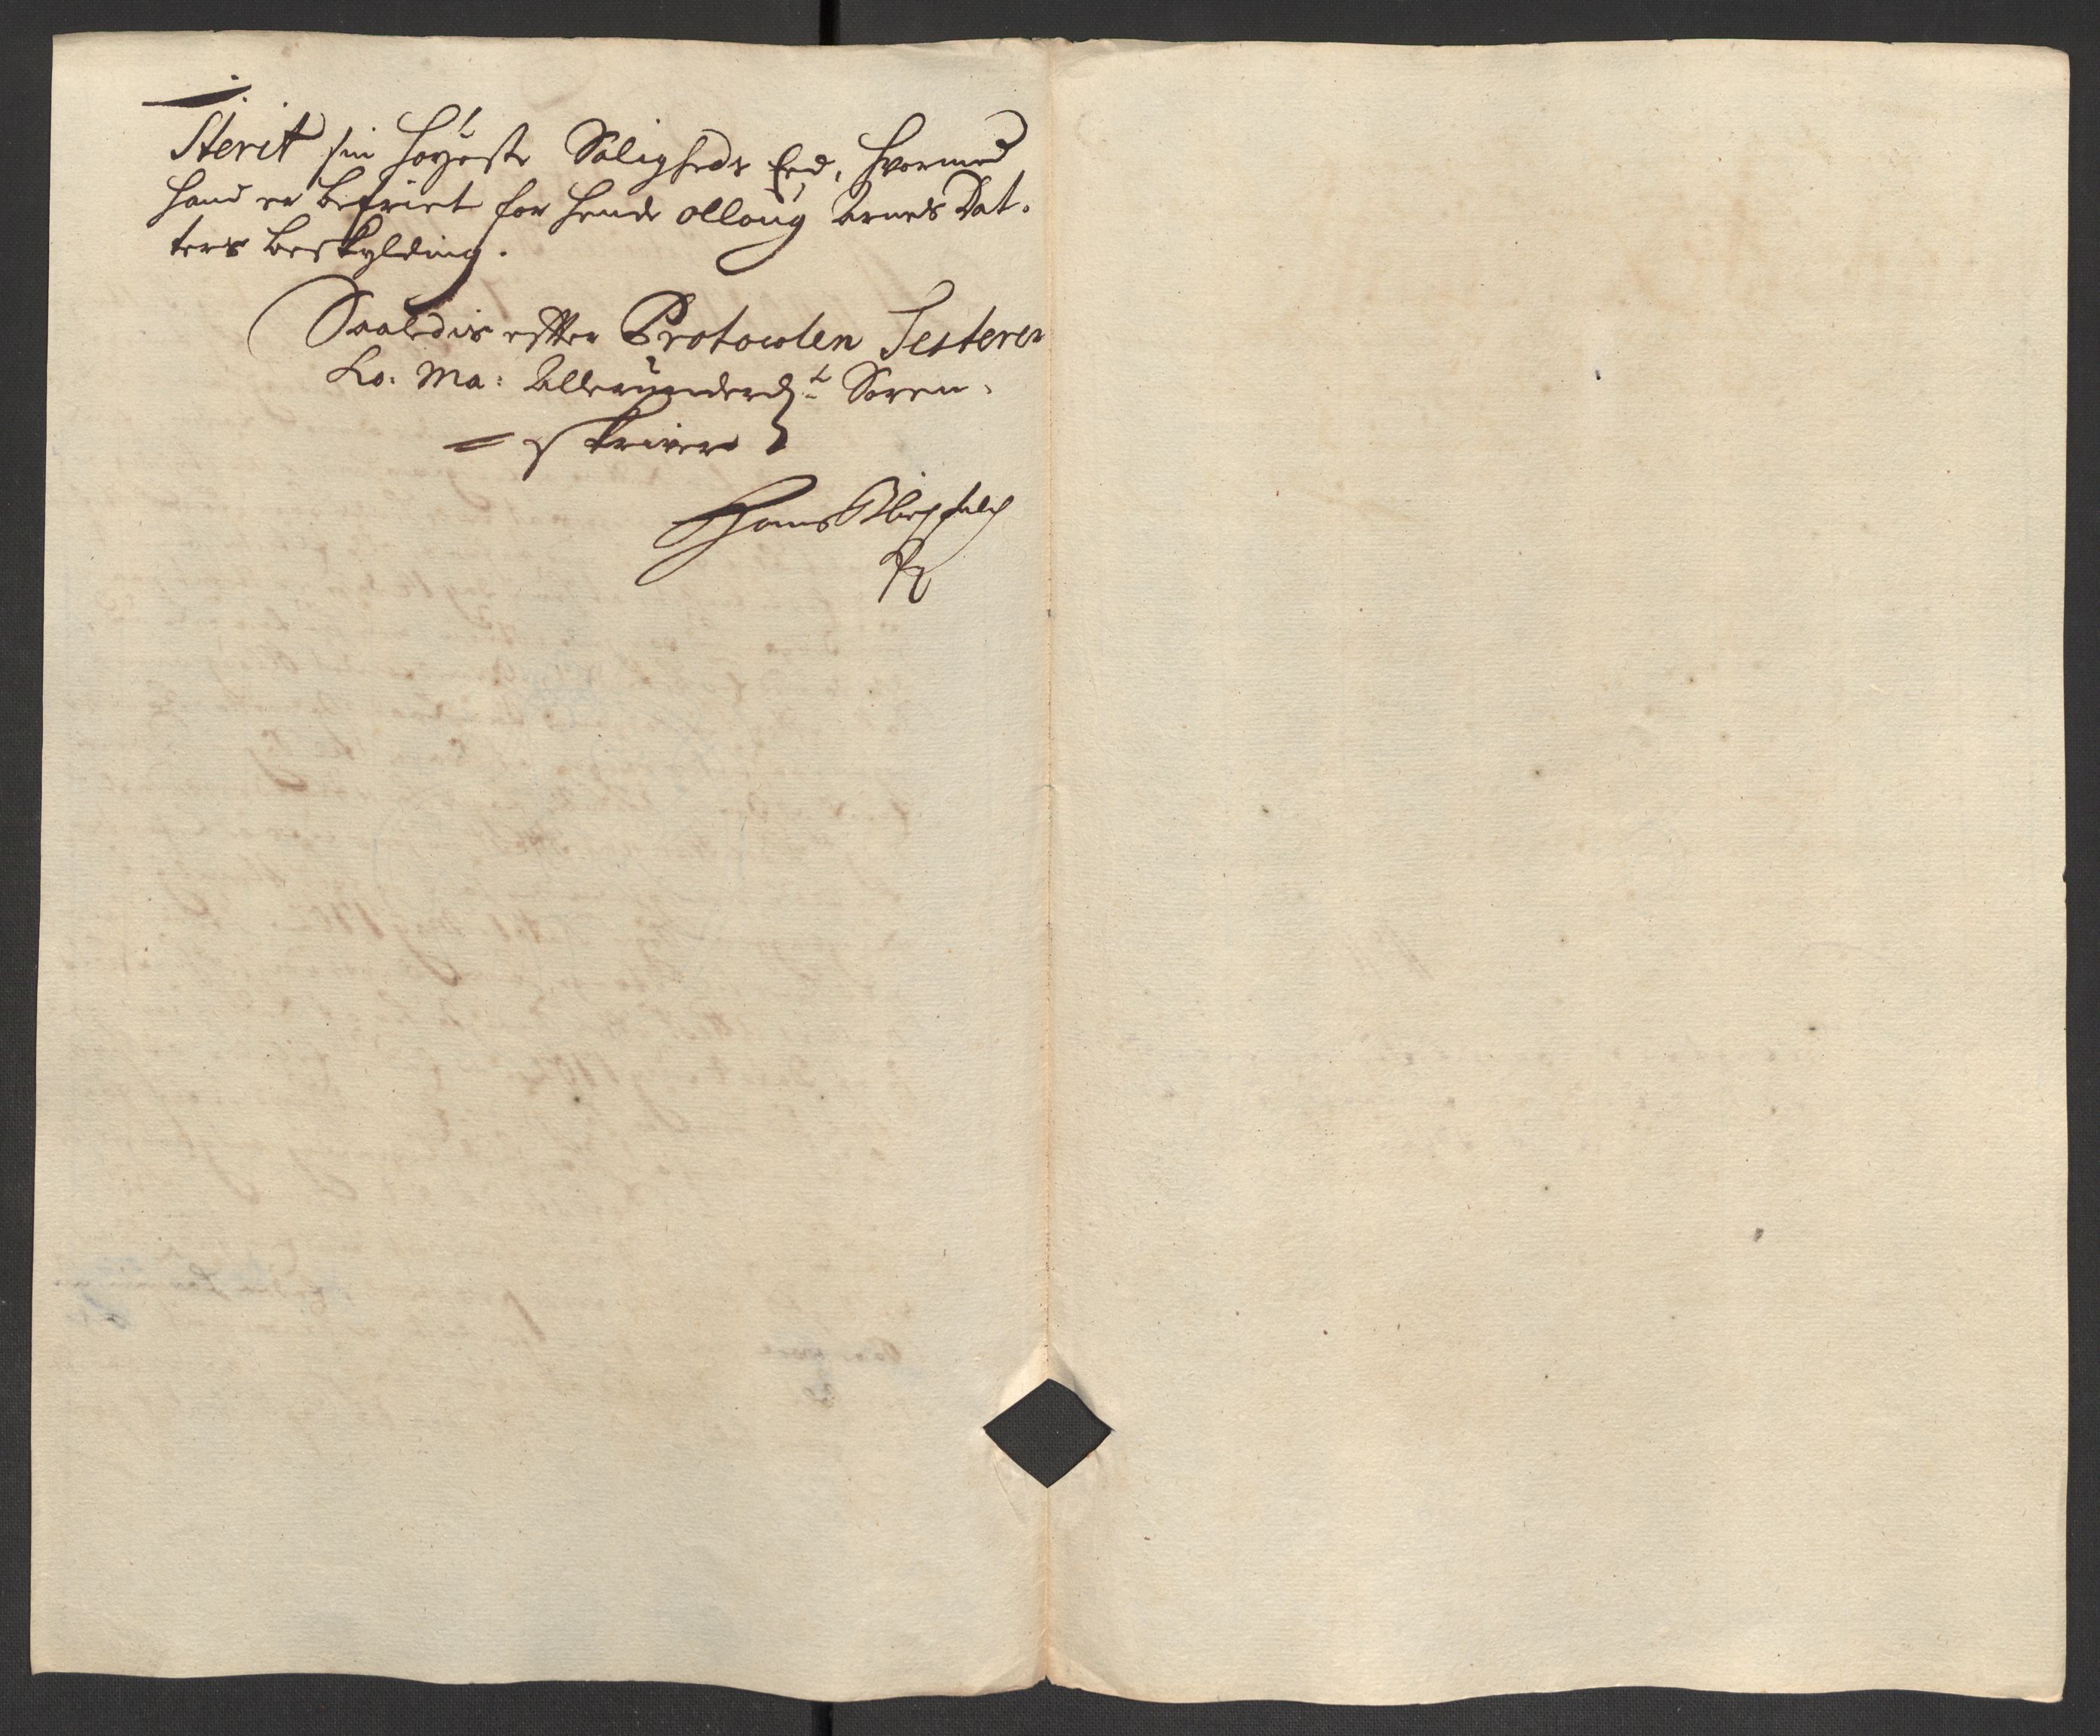 sterit sin høyeste Saligheds Eed, hvormed
hand er befriet for hende olloug Arnes Dat-
ters beskylding.
Saaledis efter Protocolen Testerer
Ko: Ma: Allerunderd:t Soren-
skriver
Hans